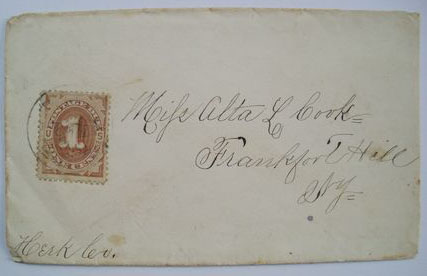 1
Miſs Alta L Cook=
Frankfort Hill
NY=
Herk Co.